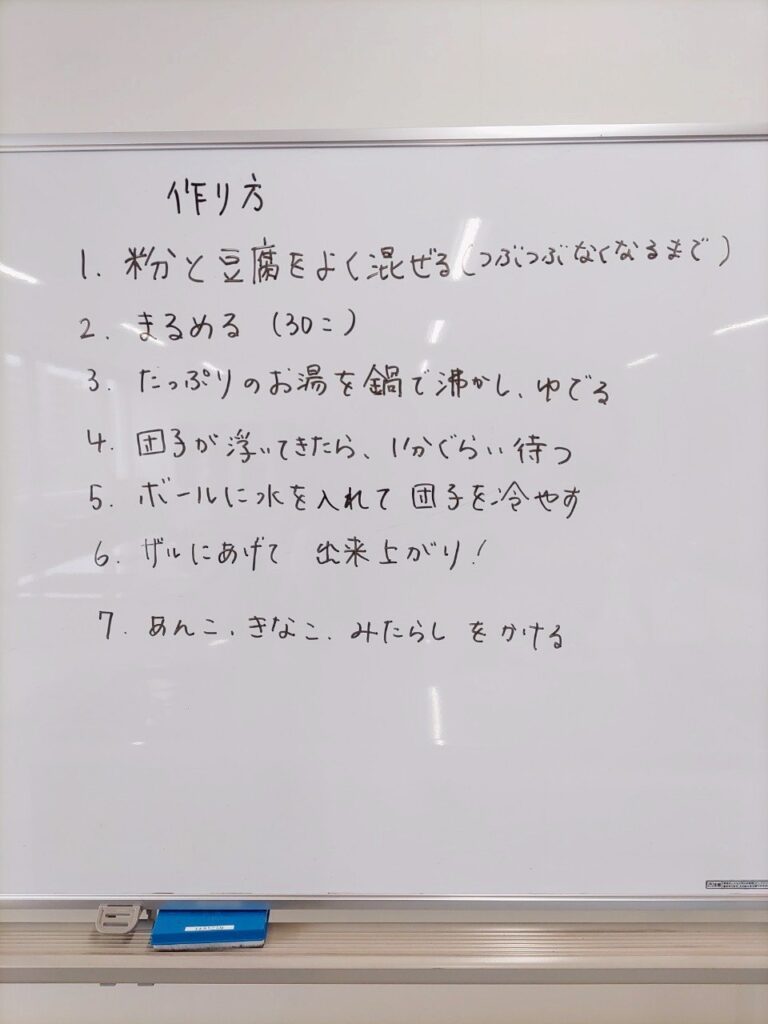 作り方
1. 粉と豆腐をよく混ぜる(つぶつぶなくなるまで)
2. まるめる (30こ)
3. たっぷりのお湯を鍋で沸かし、ゆでる
4. 団子が浮いてきたら、1分ぐらい待つ
5. ボールに水を入れて 団子を冷やす
6. ザルにあげて 出来上がり!
7. あんこ、きなこ、みたらし をかける